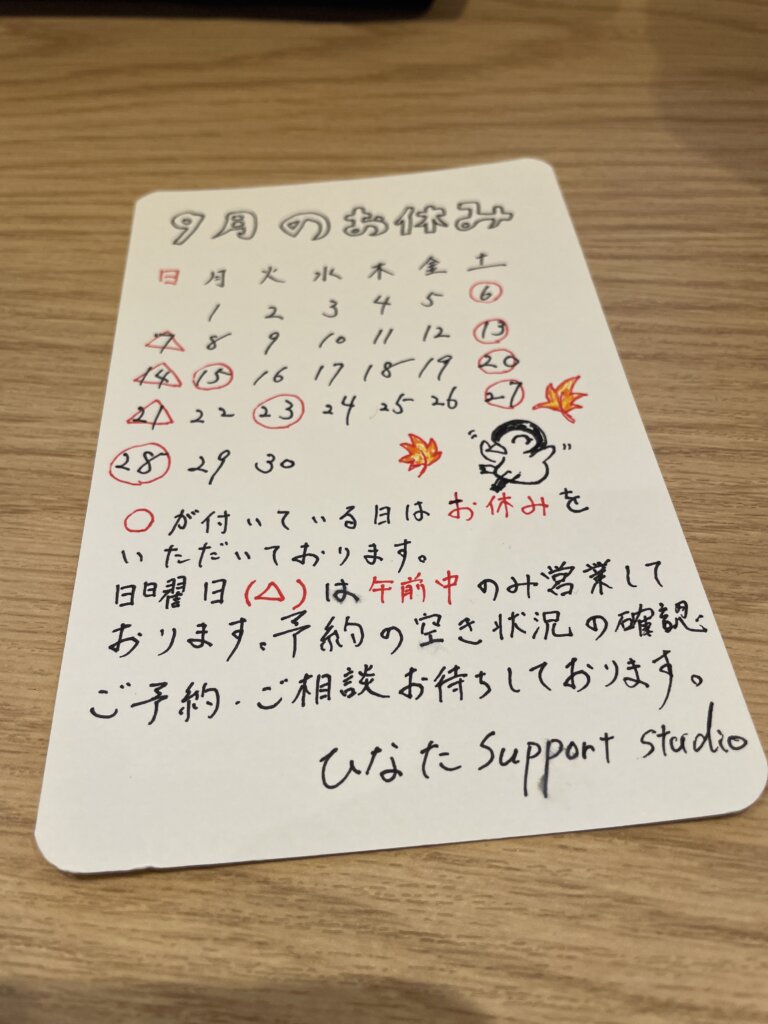 9月のお休み
日 月 火 水 木 金 土
1 2 3 4 5 6
7 8 9 10 11 12 13
14 15 16 17 18 19 20
21 22 23 24 25 26 27
28 29 30
○が付いている日はお休みを
いただいております。
日曜日(△)は午前中のみ営業して
おります。予約の空き状況の確認、
ご予約・ご相談お待ちしております。
ひなた support studio